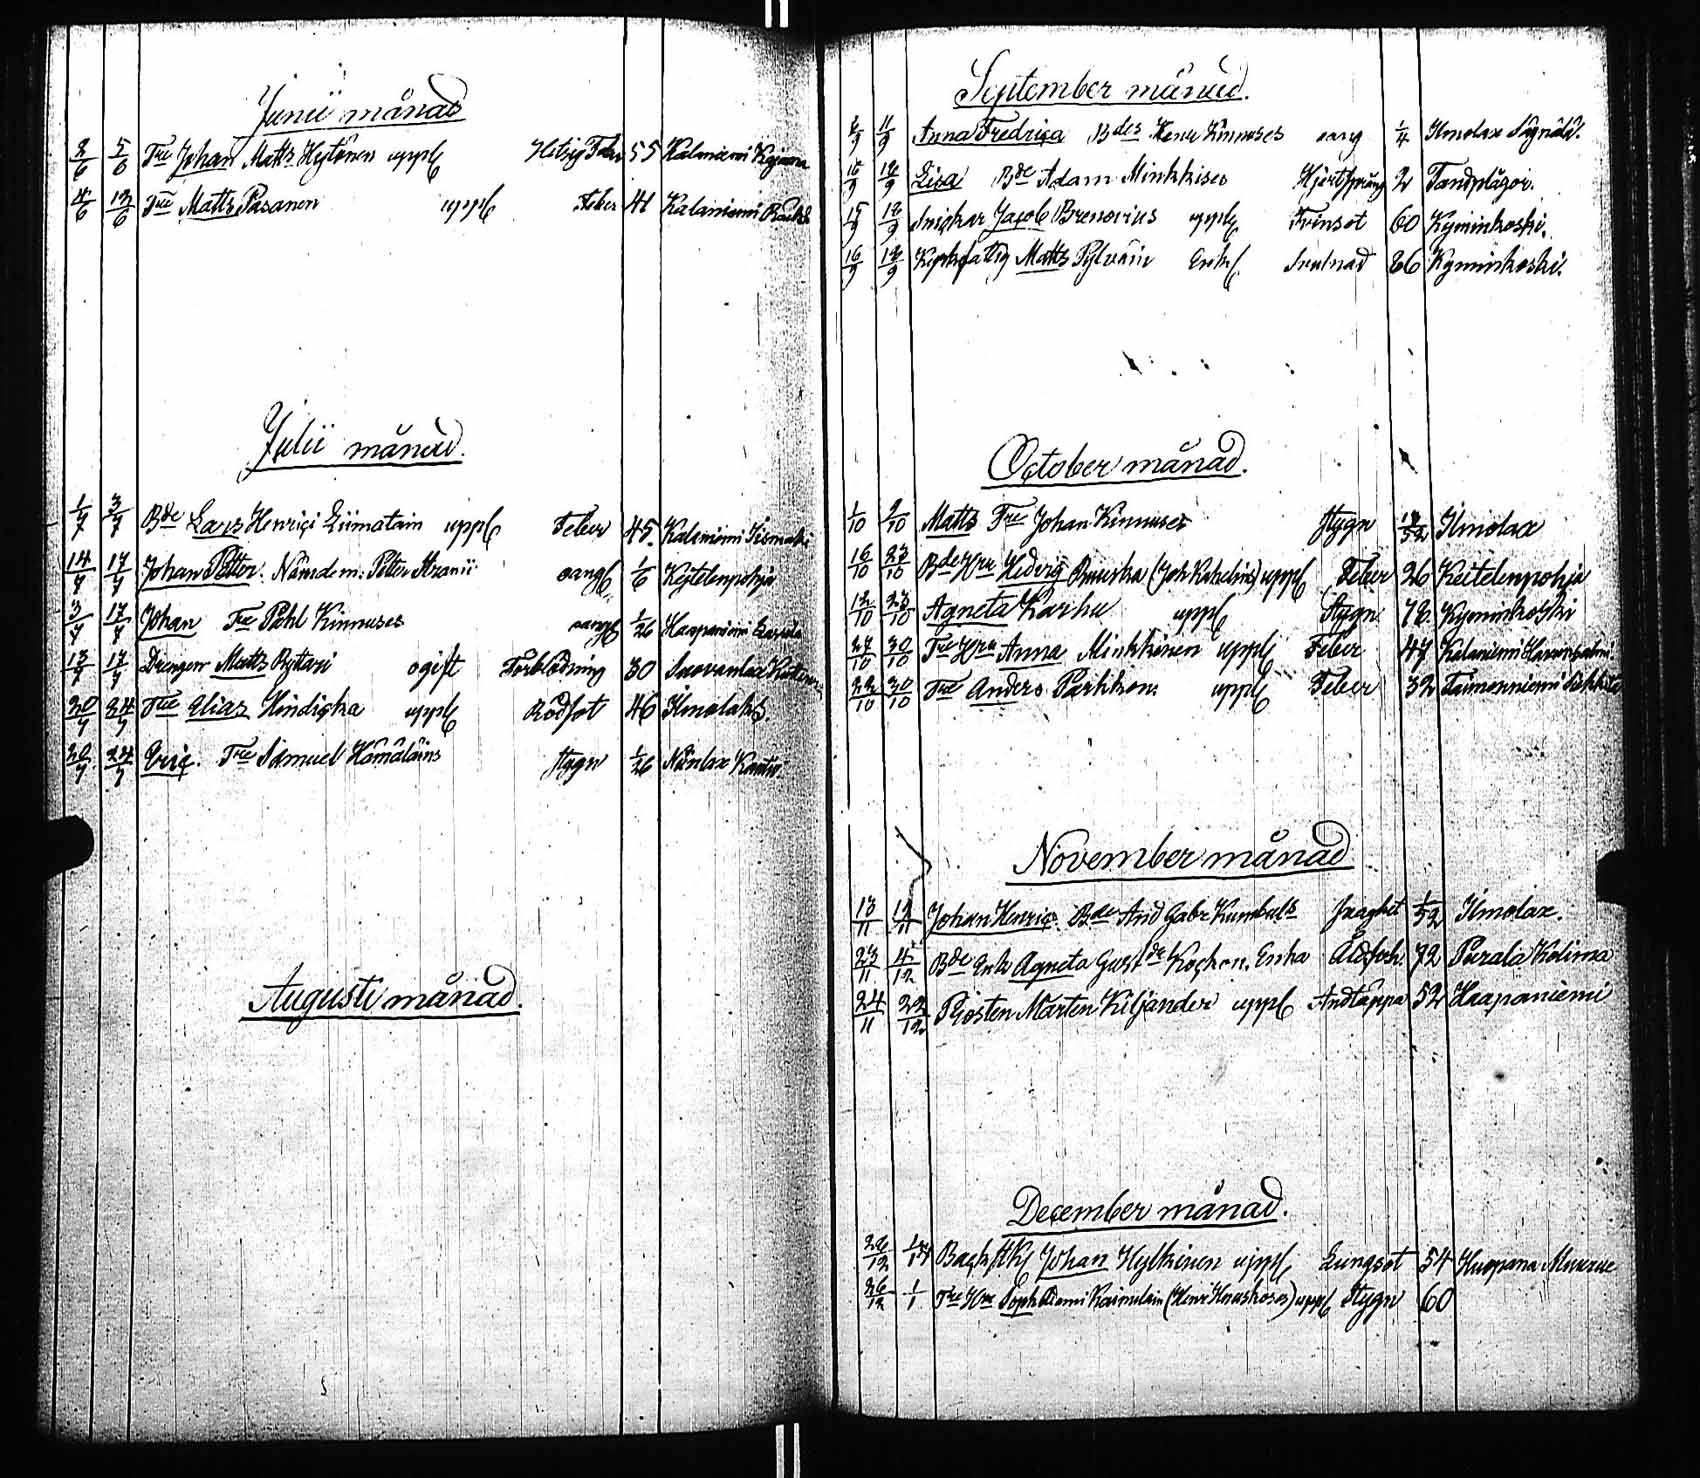 Junii månad
2/6 5/6 Tre Johan Matts Hytönen uppl Hitsig Feber 55 Kalaniemi
4/6 12/6 Tre Matts Pasanen uppl Feber 41 Kalaniemi
Julii månad.
1/7 3/7 Bde Lars Henrici Liimatain uppl Feber 45. Kalaniemi
14/7 17/7 Johan Petter. Nämdem: Petter oangf 1/6 Keitelenpohja
3/7 17/7 Johan Tre Påhl Kinnuses oangf 2/26 Haapaniemi
13/7 17/7 Drengen Matts Ryttari ogift Förblödning 30
20/7 24/7 Tre Elias Hindicka uppl Rödsot 46 Ilmolaks.
20/7 24/7 Eric. Tre Samuel Hämäläins Stygn 1/26
Augusti månad.
September månad.
11/9 Anna Fredrica Bdes Henr Kinnuses oang 1/4 Ilmolax
15/9 18/9 Lisa Bde Adam Minkkises Hjertsprång 2 Tandplågor.
15/9 18/9 Snickar Jacob Brenovius uppl Tvinsot 60 Kyminkoski.
16/9 18/9 Matts Pylväin Enkl. Svulnad 86 Kyminkoski.
October månad.
1/10 2/10 Matts Tre Johan Kinnuses Stygn Ilmolax
16/10 23/10 Bde Hru Hedvig uppl Feber 26 Keitelenpohja
12/10 23/10 Agneta Karhu uppl Stygn 78. Kyminkoski
27/10 30/10 Tre Hru Anna Minkkinen uppl Feber 47 Kalaniemi
22/10 30/10 Tre Anders Parkkon: uppl Feber 32 Taimonniemi
November månad
13/11 Johan Henric. Bde And Gabr Kumbuls 1/52 Ilmolax.
23/11 4/12 Bde Enk Agneta Gust dr Kockon. Enka Ålderdoh. 72 Purala Kolima
24/11 22/12 Mårten Kiljander uppl Andtäppa 52 Haapaniemi
December månad.
28/12 Johan Hytkinen uppl Lungsot 54
26/12 1/1 Tre Hru uppl Stygn 60